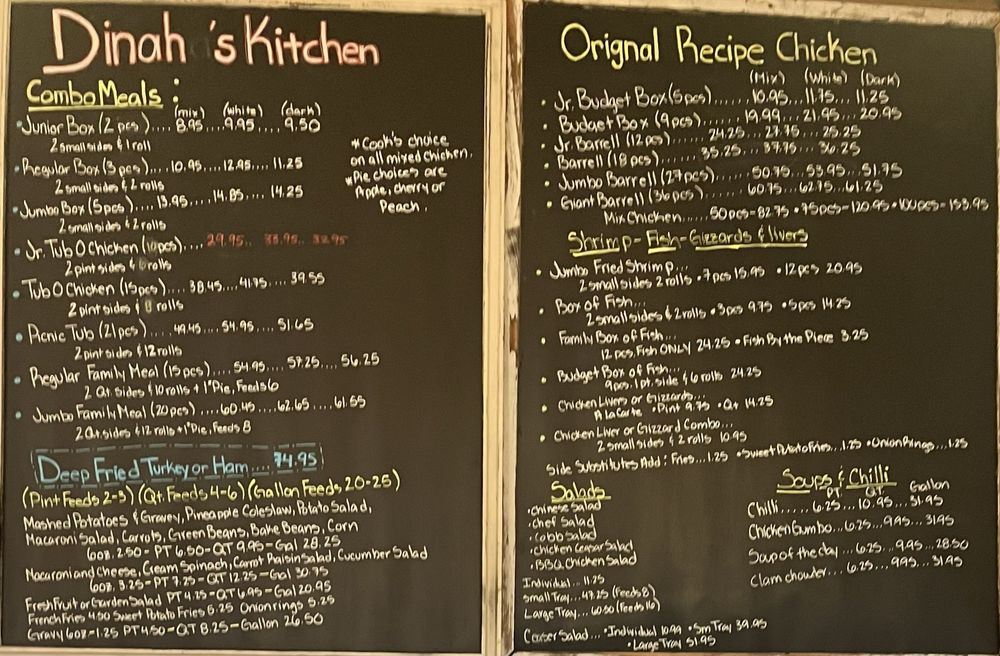 Dinah's Kitchen
Combo Meals:
(mix) (white) (dark)
Junior Box (2 pcs).... 8.95... 9.95.... 9.50
2 small sides & 1 roll
Regular Box (3 pcs).... 10.95.... 12.95.... 11.25
2 small sides & 2 rolls
Jumbo Box (5 pcs).... 13.95.... 14.85.... 14.25
2 small sides & 2 rolls
*Cook's choice
on all mixed chicken.
*Pie choices are
Apple, cherry or
Peach.
Jr. Tub O Chicken (10 pcs).... 29.95.. 33.95... 32.95
2 pint sides & rolls
Tub O Chicken (15 pcs).... 38.45.... 41.75.... 39.55
2 pint sides & 8 rolls
Picnic Tub (21 pcs).... 49.45.... 54.95.... 51.65
2 pint sides & 12 rolls
Regular Family Meal (15 pcs).... 54.95..... 57.25.... 56.25
2 Qt. sides & 10 rolls + 1" Pie, Feeds 6
Jumbo Family Meal (20 pcs).... 60.45.... 62.65.... 61.55
2 Qt. sides & 12 rolls + 1" Pie, Feeds 8
Deep Fried Turkey or Ham.... 74.95
(Pint Feeds 2-3) (Qt. Feeds 4-6) (Gallon Feeds 20-25)
Mashed Potatoes & Gravey, Pineapple Coleslaw, Potato Salad,
Macaroni Salad, Carrots, Green Beans, Bake Beans, Corn
6oz. 2.50 - PT 6.50 - QT 9.95 - Gal 28.25
Macaroni and Cheese, Cream Spinach, Carrot Raisin Salad, Cucumber Salad
6oz. 3.25 - PT 7.25 - QT 12.25 - Gal 30.75
Fresh Fruit or Garden Salad PT 4.25 - QT 6.95 - Gal 20.95
French Fries 4.50 Sweet Potato Fries 5.25 Onion rings 5.25
Gravy 6oz - 1.25 PT 4.50 - QT 8.25 - Gallon 26.50
Orignal Recipe Chicken
(Mix) (White) (Dark)
Jr. Budget Box (5 pcs)....... 10.95... 11.75... 11.25
Budget Box (9 pcs)....... 19.99... 21.95... 20.95
Jr. Barrell (12 pcs)....... 24.25... 27.75... 25.25
Barrell (18 pcs)....... 35.25... 37.75... 36.25
Jumbo Barrell (27 pcs)...... 50.75... 53.95... 51.75
Giant Barrell (36 pcs)...... 60.75... 62.75... 61.25
Mix Chicken...... 50 pcs = 82.75 • 75 pcs = 120.95 • 100 pcs = 153.95
Shrimp - Fish - Gizzards & livers
Jumbo Fried Shrimp...
2 small sides 2 rolls • 7 pcs 15.95 • 12 pcs 20.95
Box of Fish...
2 small sides & 2 rolls • 3 pcs 9.75 • 5 pcs 14.25
Family Box of Fish...
12 pcs. Fish ONLY 24.25 • Fish By the Piece 3.25
Budget Box of Fish...
9 pcs. 1 pt. side & 6 rolls 24.25
Chicken Livers or Gizzards...
A La Carte • Pint 9.75 • Qt 14.25
Chicken Liver or Gizzard Combo...
2 small sides & 2 rolls 10.95
Side Substitutes Add: Fries... 1.25 • Sweet Potato Fries... 1.25 • Onion Rings... 1.25
Salads
• Chinese Salad
• Chef Salad
• Cobb Salad
• Chicken Caesar Salad
• BBQ Chicken Salad
Individual... 11.25
Small Tray.... 47.25 (Feeds 8)
Large Tray... 60.50 (Feeds 16)
Caesar Salad... • Individual 10.99 • Sm Tray 39.95
• Large Tray 51.95
Soups & Chilli
PT. QT. Gallon
Chilli...... 6.25... 10.95... 31.95
Chicken Gumbo... 6.25... 9.95... 31.95
Soup of the day... 6.25... 9.95... 28.50
Clam chowder... 6.25... 9.95... 31.95